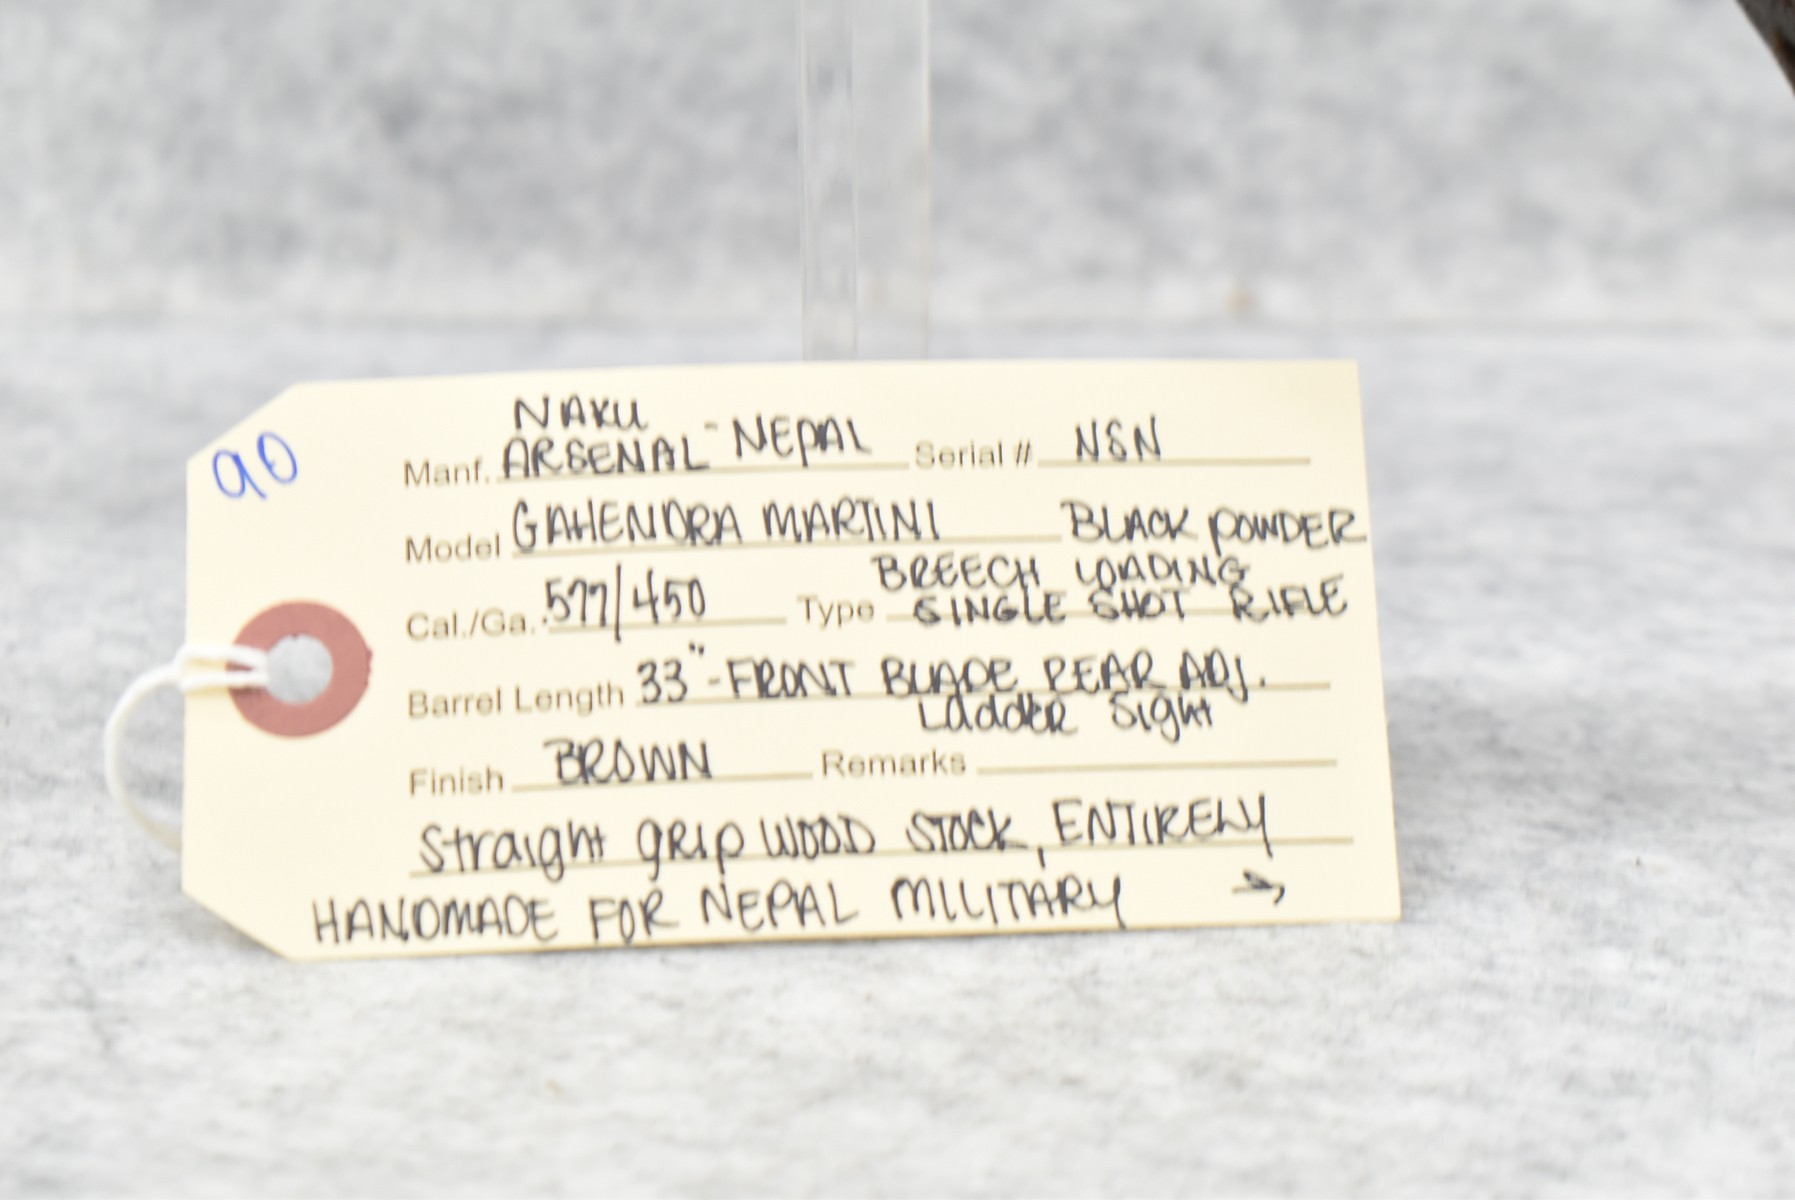 90
NAKU
Manf. ARSENAL - NEPAL Serial # NSN
Model GAHENDRA MARTINI BLACK POWDER
BREECH LOADING
Cal./Ga. .577/450 Type SINGLE SHOT RIFLE
Barrel Length 33" - FRONT BLADE REAR ADJ.
Ladder Sight
Finish BROWN Remarks
Straight GRIP WOOD STOCK, ENTIRELY
HANDMADE FOR NEPAL MILITARY →